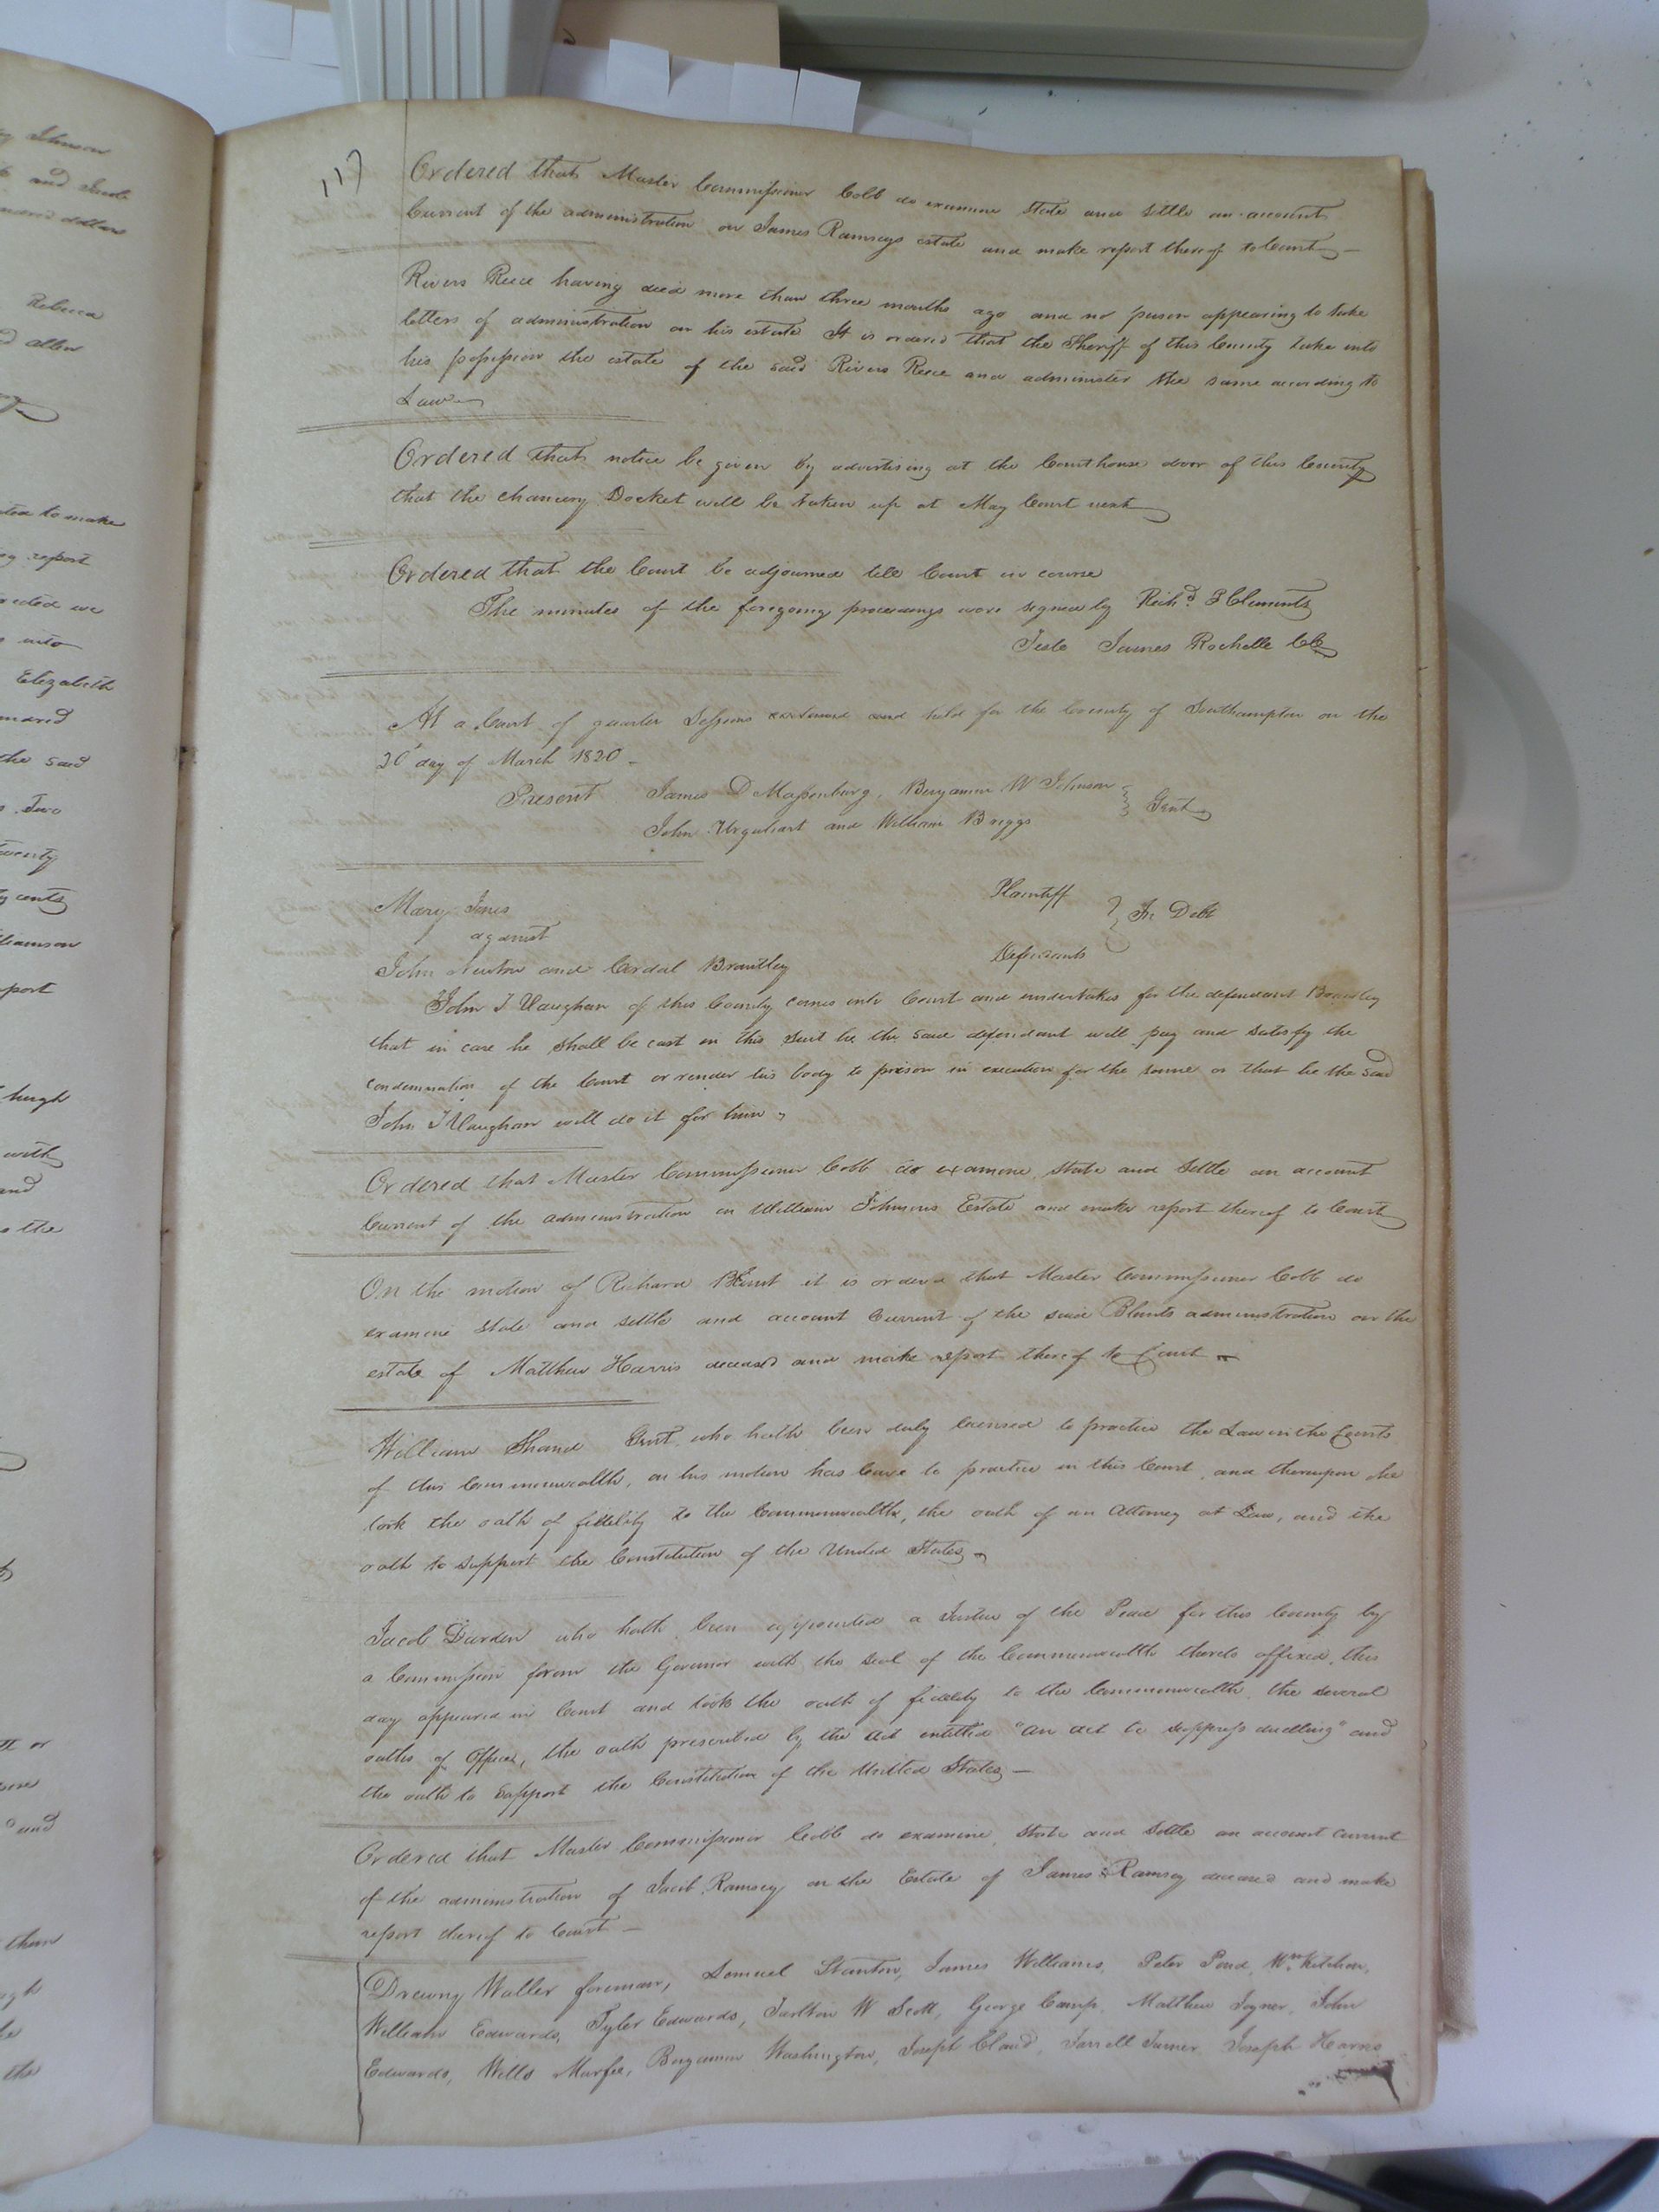 117
Ordered that Master Commissioner Cobb do examine state and settle an account
Current of the administration on James Ramseys estate and make report thereof to Court
Rivers Reece having died more than three months ago and no person appearing to take
letters of administration on his estate It is ordered that the Sheriff of this County take into
his possession the estate of the said Rivers Reece and administer the same according to
Law
Ordered that notice be given by advertising at the Courthouse door of this County
that the Chancery Docket will be taken up at May Court next
Ordered that the Court be adjourned till Court in course
The minutes of the foregoing proceedings were signed by Richd. P Clements
Teste James Rochelle CC
At a Court of quarter Sessions continued and held for the County of Southampton on the
20 day of March 1820
Present James D Massenburg, Benjamin W Johnson
John Urquhart and William Briggs } Gent
Mary Jones Plaintiff
against } In Debt
John Newton and Cordal Brantley Defendants
John T Vaughan of this County comes into Court and undertakes for the defendant Brantley
that in case he shall be cast in this suit he the said defendant will pay and satisfy the
condemnation of the Court or render his body to prison in execution for the same or that he the said
John T Vaughan will do it for him
Ordered that Master Commissioner Cobb do examine, state and settle an account
Current of the administration on William Johnsons Estate and make report thereof to Court
On the motion of Richard Blunt it is ordered that Master Commissioner Cobb do
examine state and settle and account Current of the said Blunts administration on the
estate of Matthew Harris deceased and make report thereof to Court
William Shand Gent. who hath been duly licensed to practice the Law in the Courts
of this Commonwealth, on his motion has leave to practice in this Court, and thereupon he
took the oath of fidelity to the Commonwealth, the oath of an Attorney at Law, and the
oath to support the Constitution of the United States
Jacob Darden who hath been appointed a Justice of the Peace for this County by
a Commission from the Governor with the Seal of the Commonwealth thereto affixed, this
day appeared in Court and took the oath of fidelity to the Commonwealth, the several
oaths of Office, the oath prescribed by the act entitled "an act to suppress duelling" and
the oath to support the Constitution of the United States
Ordered that Master Commissioner Cobb do examine, state and settle an account current
of the administration of Jacob Ramsey on the Estate of James Ramsey deceased and make
report thereof to Court
Drewry Waller foreman, Samuel Stanton, James Williams, Peter Pond, Wm. Kitchen,
William Edwards, Tyler Edwards, Tarlton W Scott, George Camp, Matthew Joyner, John
Edwards, Wills Murfee, Benjamin Washington, Joseph Claud, Jarrell Turner, Joseph Harris